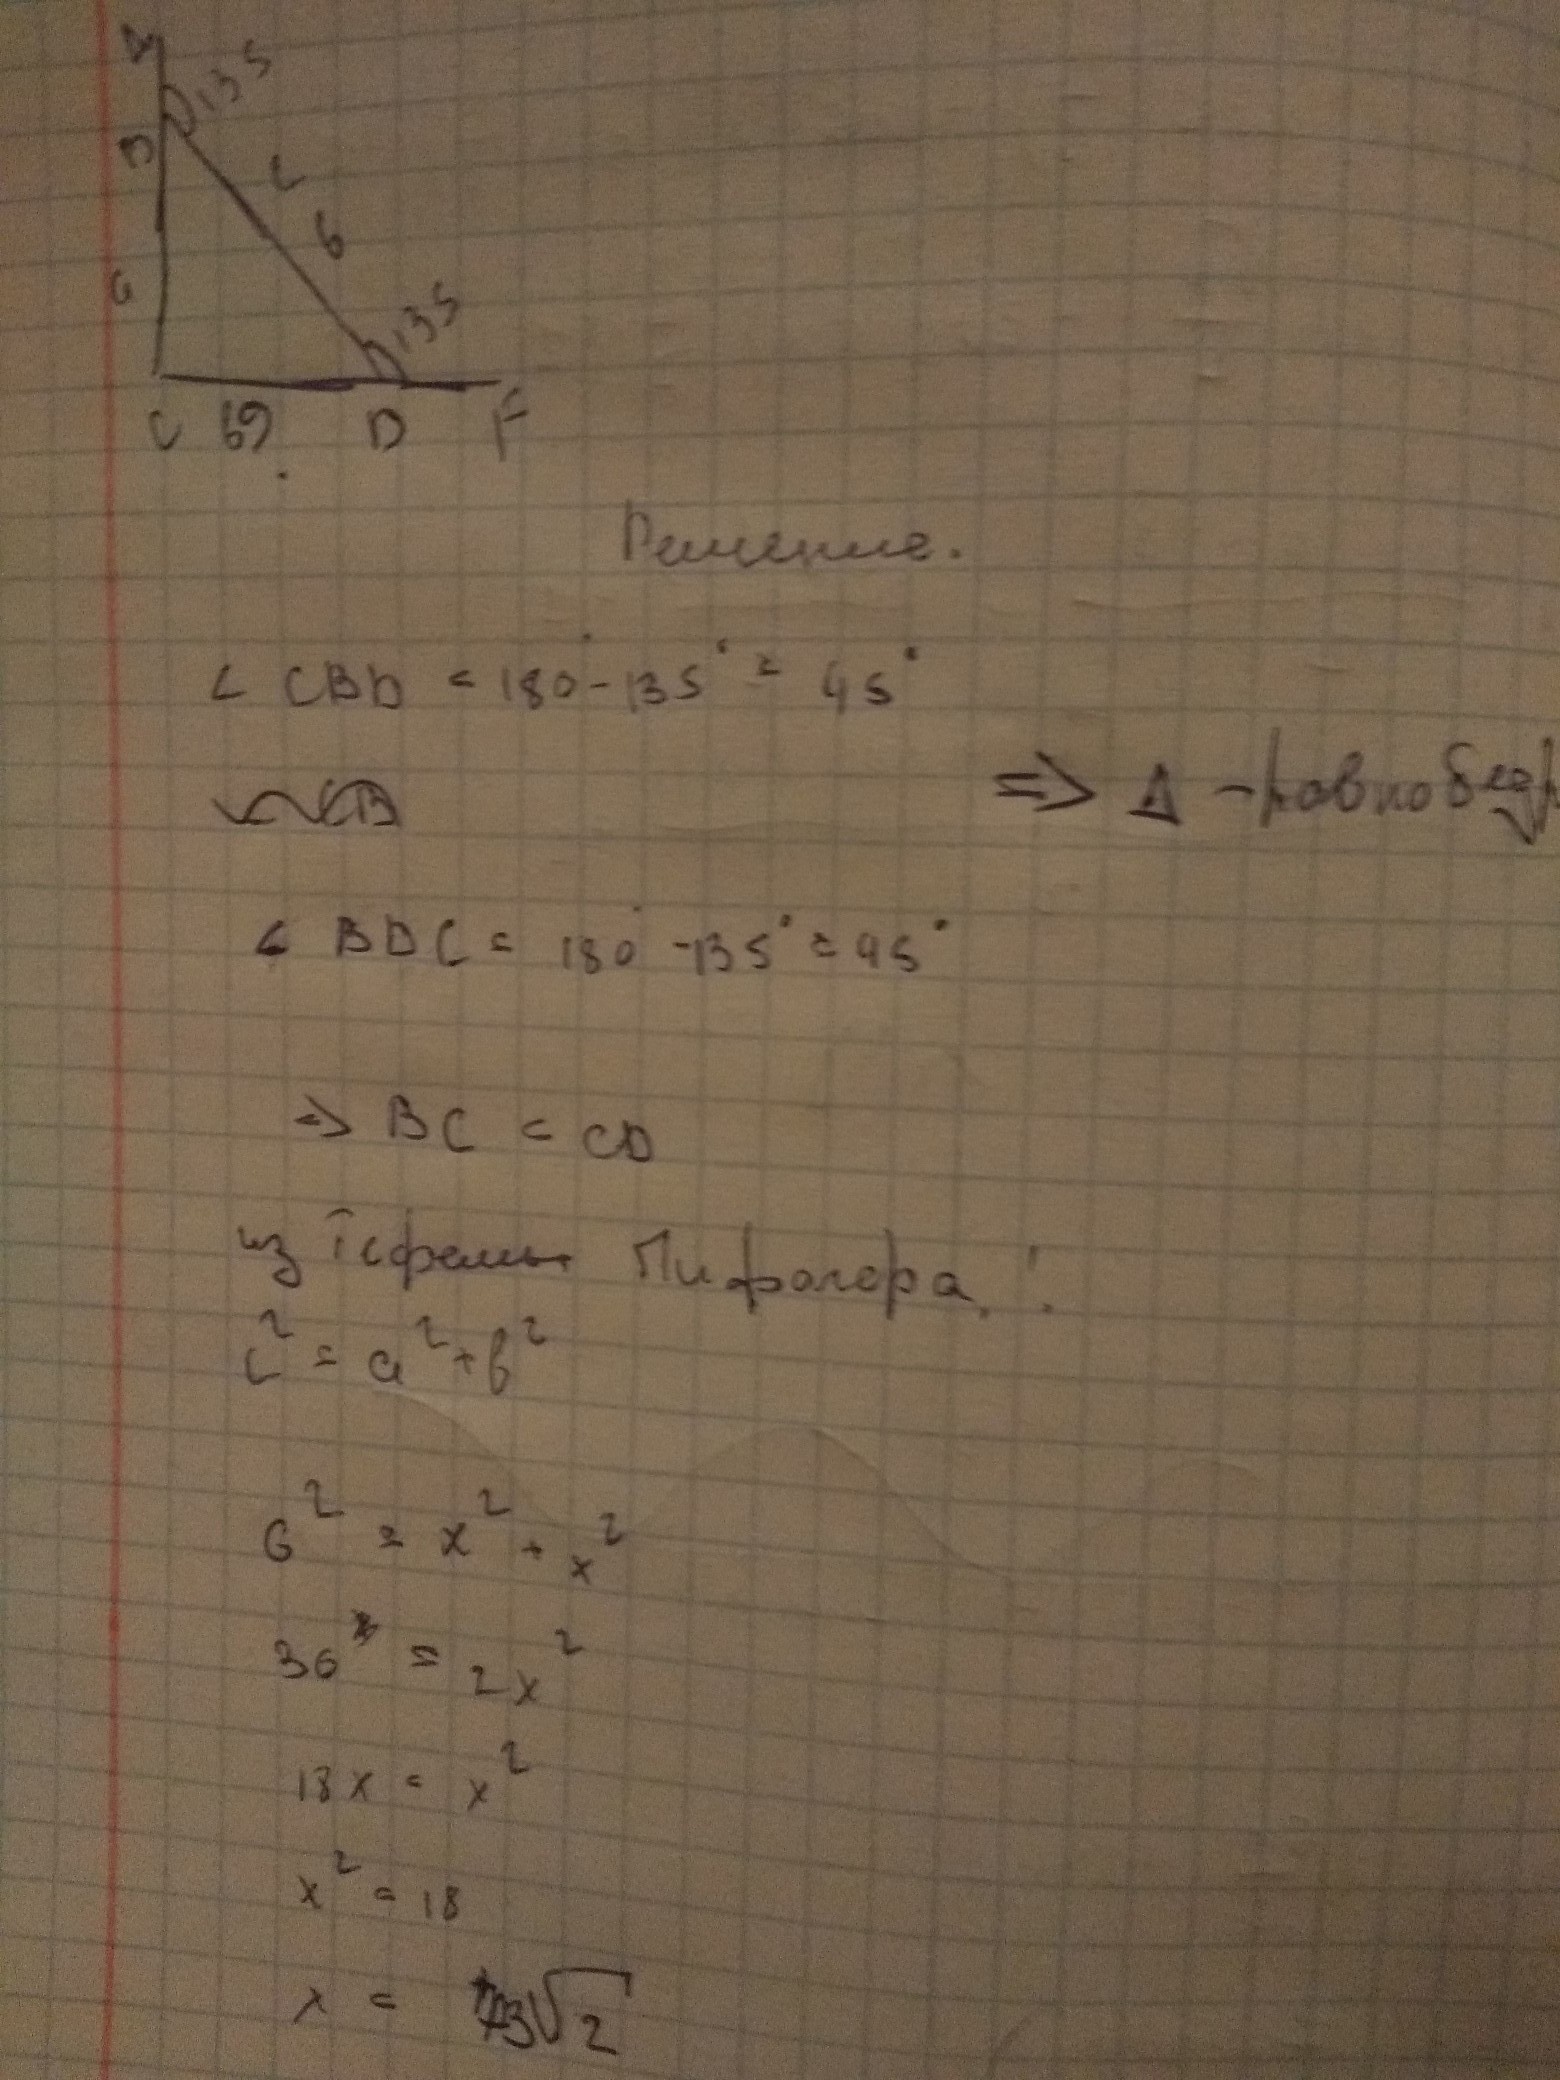 A
135
B
c
6
a
135
C
в
D
F
Решение.
∠ CBD = 180° - 135° = 45°
⇒ Δ - равнобедр
∠ BDC = 180° - 135° = 45°
⇒ BC = CD
из Теоремы Пифагора :
c² = a² + в²
6² = x² + x²
36 = 2x²
18x = x²
x² = 18
x = 3√2